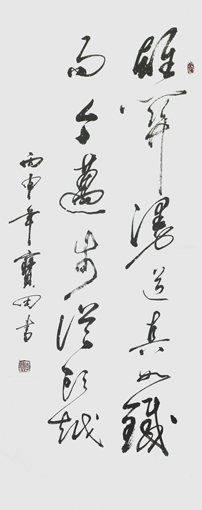 雄關漫道真如鐵
而今邁步從頭越
丙申年寶田書